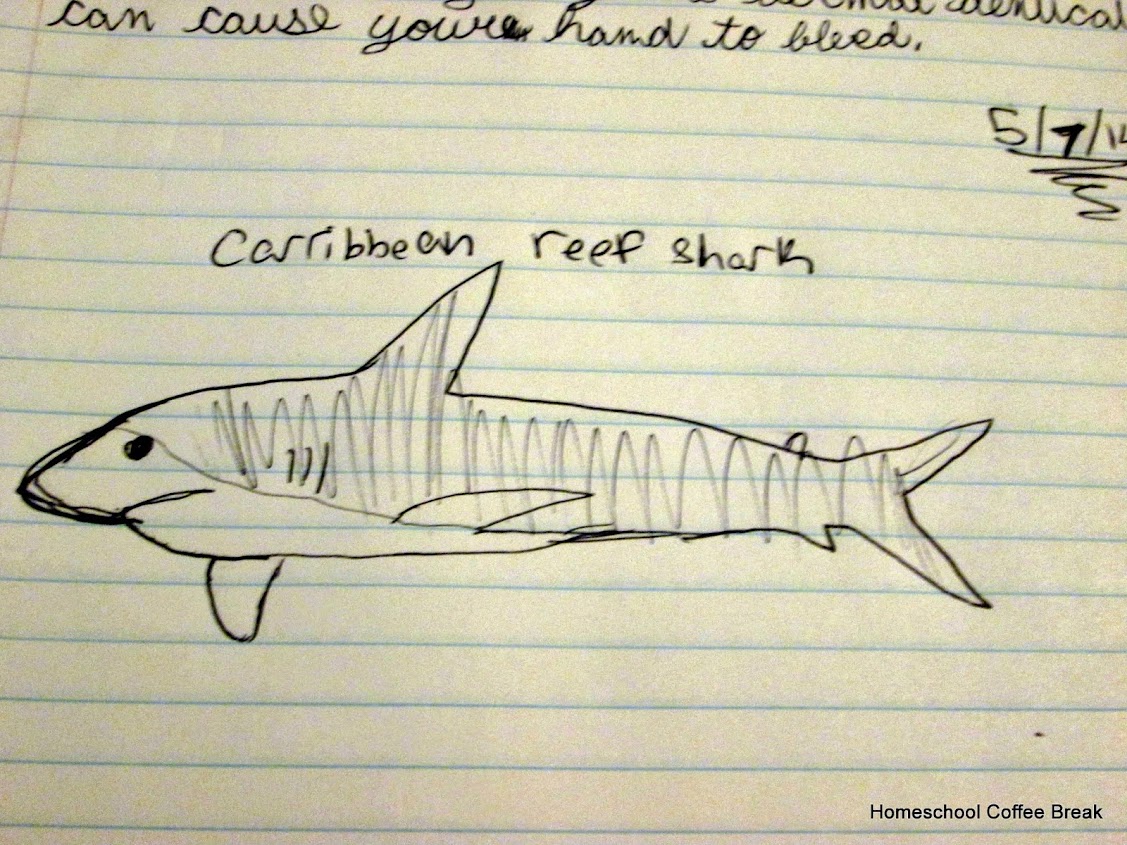 identical
can cause your hand to bleed.
5/7/14
Carribbean reef shark
Homeschool Coffee Break